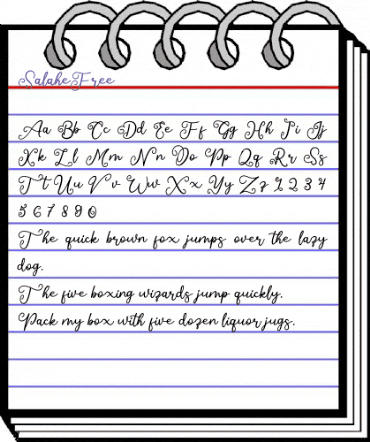 SalaheFree
Aa Bb Cc Dd Ee Ff Gg Hh Ii Jj
Kk Ll Mm Nn Oo Pp Qq Rr Ss
Tt Uu Vv Ww Xx Yy Zz 1 2 3 4
5 6 7 8 9 0
The quick brown fox jumps over the lazy
dog.
The five boxing wizards jump quickly.
Pack my box with five dozen liquor jugs.